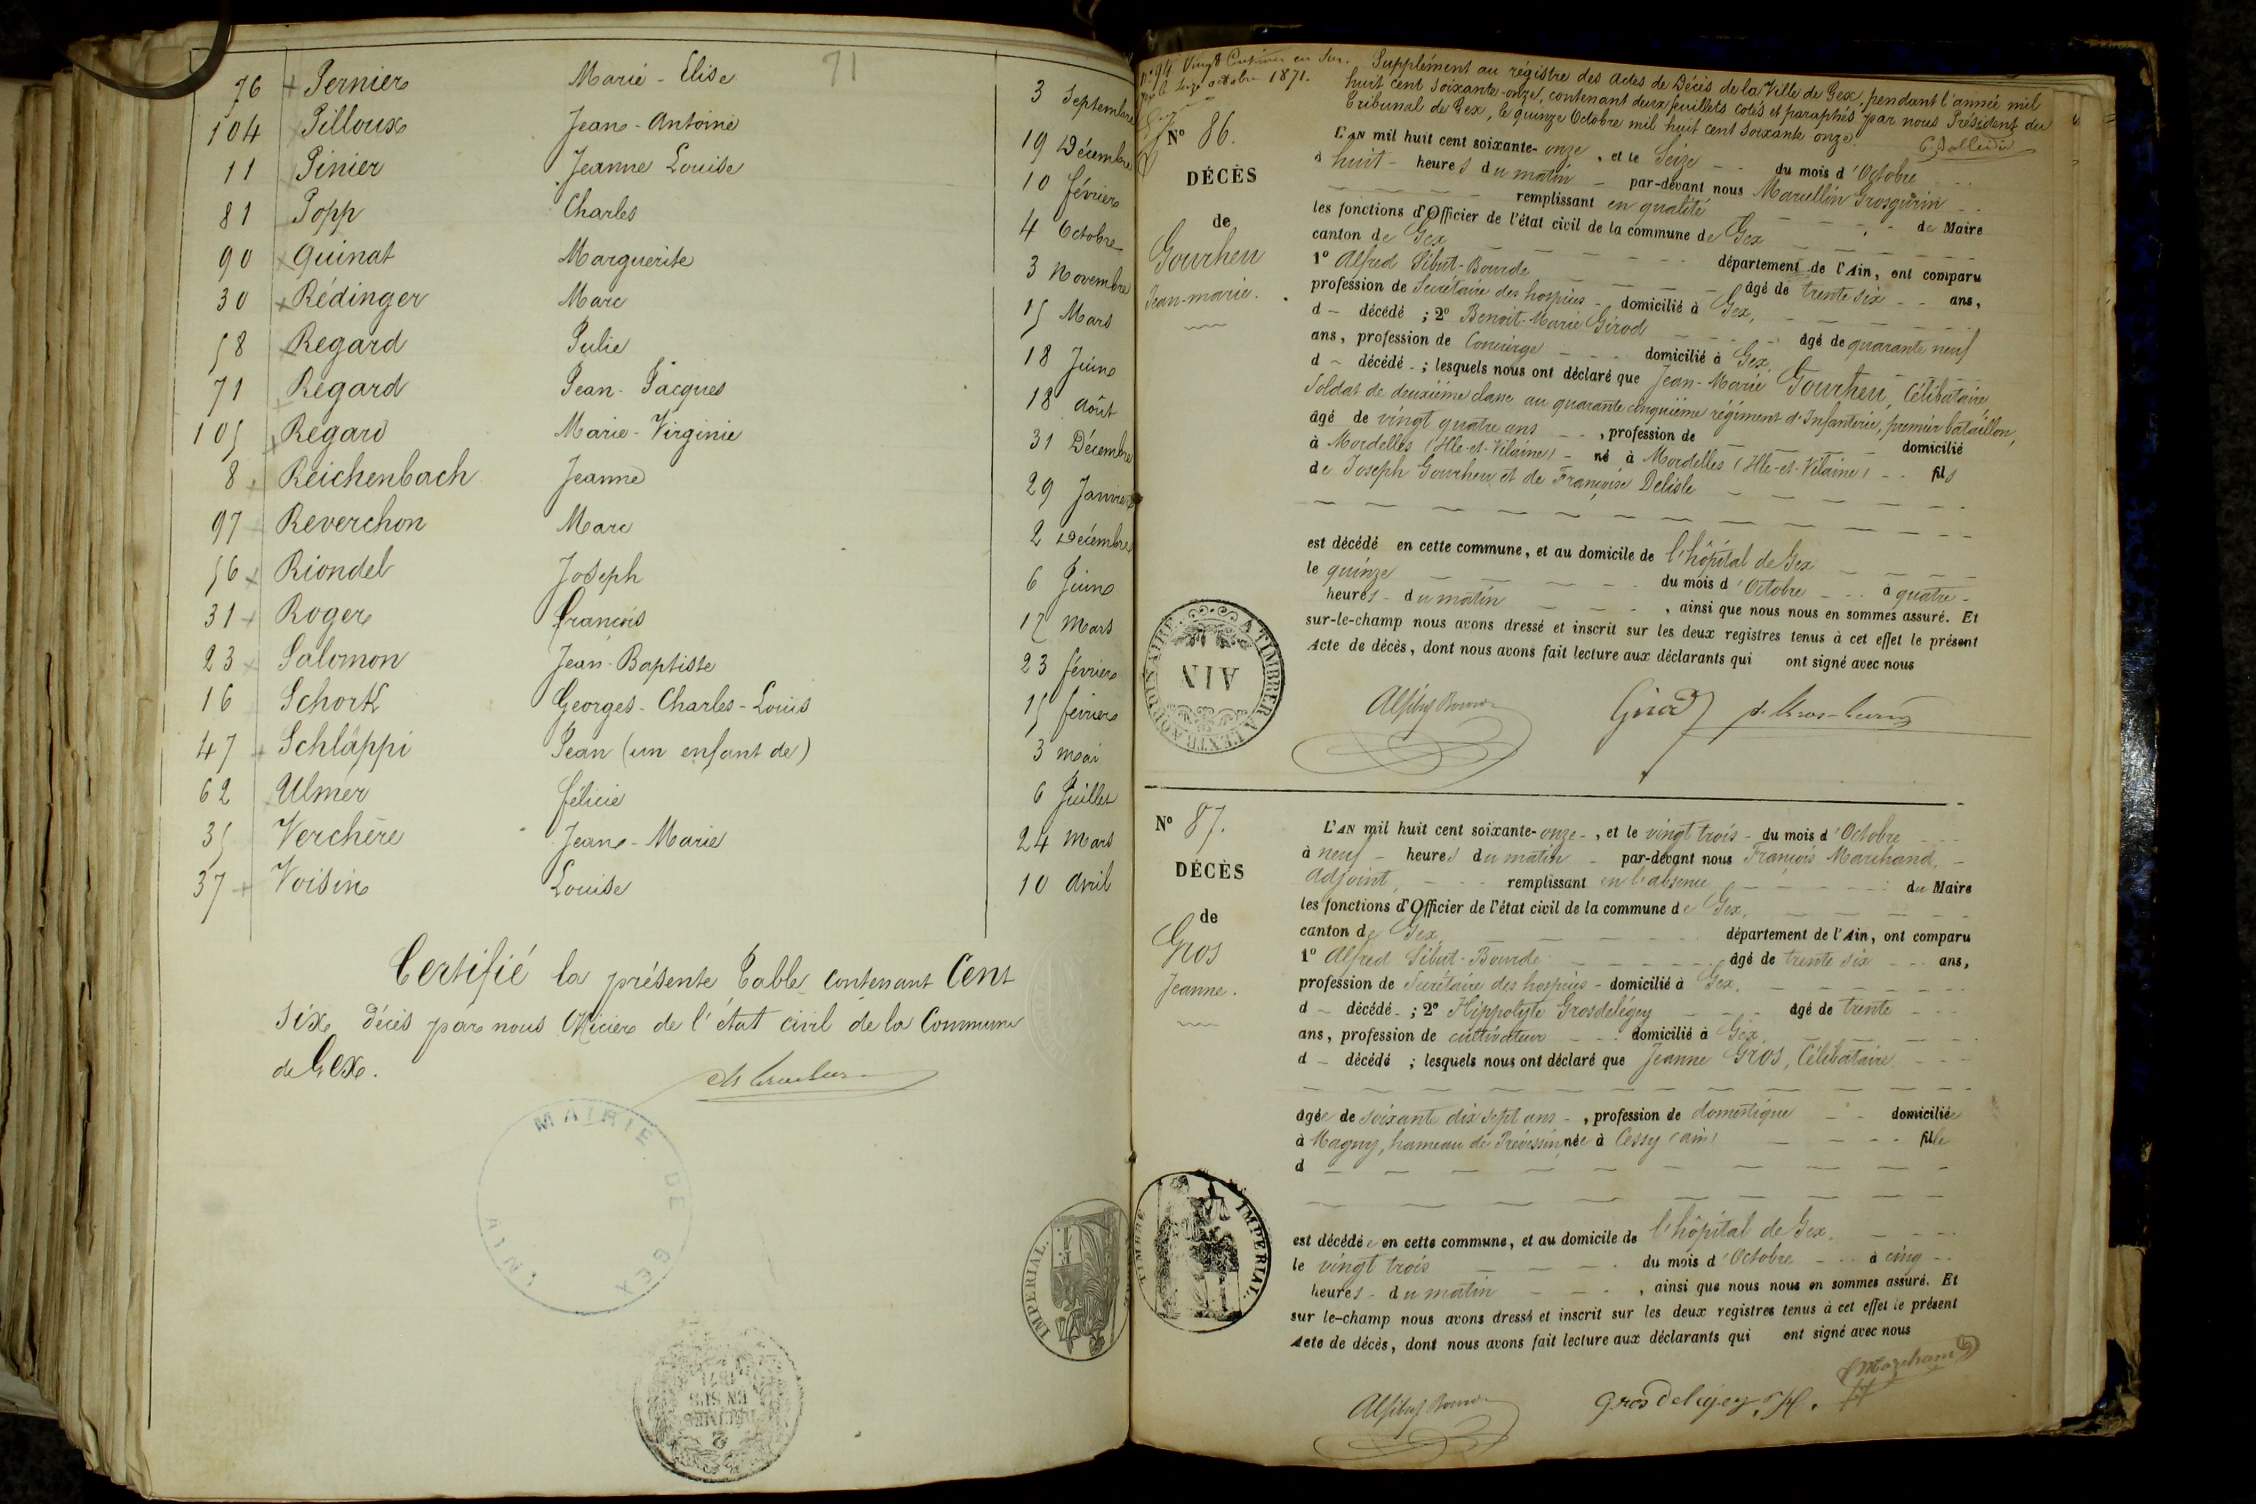 71
76 + Pernier Marie - Elise 3 Septembre
104 Pilloux Jean - Antoine 19 Décembre
11 Pinier Jeanne Louise 10 février
81 Popp Charles 4 Octobre
90 + Quinat Marguerite 3 Novembre
30 + Rédinger Marc 15 Mars
58 Regard Julie 18 Juin
71 Regard Jean - Jacques 18 août
105 + Regard Marie - Virginie 31 Décembre
8 + Reichenbach Jeanne 29 Janvier
97 Reverchon Marc 2 Décembre
56 + Riondel Joseph 6 Juin
31 + Roger François 12 Mars
23 + Salomon Jean - Baptiste 23 février
16 Schork Georges - Charles - Louis 15 février
47 + Schläppi Jean (un enfant de) 3 mai
62 Ulmer félicie 6 Juillet
35 Verchère Jean - Marie 24 Mars
37 + Voisin Louise 10 avril
Certifié la présente Table contenant Cent
six décès par nous Officier de l'état civil de la Commune
de Gex.
MAIRIE DE GEX
AIN
IMPERIAL.
2
DÉCIMES
EN SUS
1871
Nº 94 Vingt Centimes en sus.
Gex le seize octobre 1871.
Supplément au régistre des actes de Décès de la Ville de Gex, pendant l'année mil
huit cent soixante-onze, contenant deux feuillets cotés et paraphés par nous Président du
Tribunal de Gex, le quinze Octobre mil huit cent soixante onze.
Nº 86.
DÉCÈS
de
Gourheu
Jean-marie.
L'AN mil huit cent soixante-onze, et le Seize du mois d'Octobre
à huit heures du matin par-devant nous Marcellin Grosgurin
remplissant en qualité de Maire
les fonctions d'Officier de l'état civil de la commune de Gex
canton de Gex département de l'Ain, ont comparu
1º Alfred Sibut-Bourde âgé de trente six ans,
profession de Secrétaire des hospices domicilié à Gex,
d décédé ; 2º Benoit-Marie Girod âgé de quarante neuf
ans, profession de Concierge domicilié à Gex,
d décédé ; lesquels nous ont déclaré que Jean-Marie Gourheu, Célibataire
Soldat de deuxième classe au quarante cinquième régiment d'Infanterie, premier bataillon,
âgé de vingt quatre ans, profession de domicilié
à Mordelles (Ille-et-Vilaine) né à Mordelles (Ille-et-Vilaine) fils
de Joseph Gourheu et de Françoise Delisle
est décédé en cette commune, et au domicile de l'hôpital de Gex
le quinze du mois d'Octobre à quatre
heures du matin, ainsi que nous nous en sommes assuré. Et
sur-le-champ nous avons dressé et inscrit sur les deux registres tenus à cet effet le présent
Acte de décès, dont nous avons fait lecture aux déclarants qui ont signé avec nous
A TIMBRER A L'EXTRAORDINAIRE.
AIN
Girod
Nº 87.
DÉCÈS
de
Gros
Jeanne.
L'AN mil huit cent soixante-onze, et le vingt trois du mois d'Octobre
à neuf heures du matin par-devant nous François Marchand,
adjoint, remplissant en l'absence du Maire
les fonctions d'Officier de l'état civil de la commune de Gex,
canton de Gex département de l'Ain, ont comparu
1º Alfred Sibut-Bourde âgé de trente six ans,
profession de Secrétaire des hospices domicilié à Gex,
d décédé ; 2º Hippolyte Grosdelégey âgé de trente
ans, profession de cultivateur domicilié à Gex
d décédé ; lesquels nous ont déclaré que Jeanne Gros, Célibataire
âgée de soixante dix sept ans, profession de domestique domiciliée
à Magny, hameau de Prévessin, née à Cessy (ain) fille
d
est décédée en cette commune, et au domicile de l'hôpital de Gex.
le vingt trois du mois d'Octobre à cinq
heures du matin, ainsi que nous nous en sommes assuré. Et
sur le-champ nous avons dressé et inscrit sur les deux registres tenus à cet effet le présent
Acte de décès, dont nous avons fait lecture aux déclarants qui ont signé avec nous
TIMBRE IMPERIAL.
F Marchand